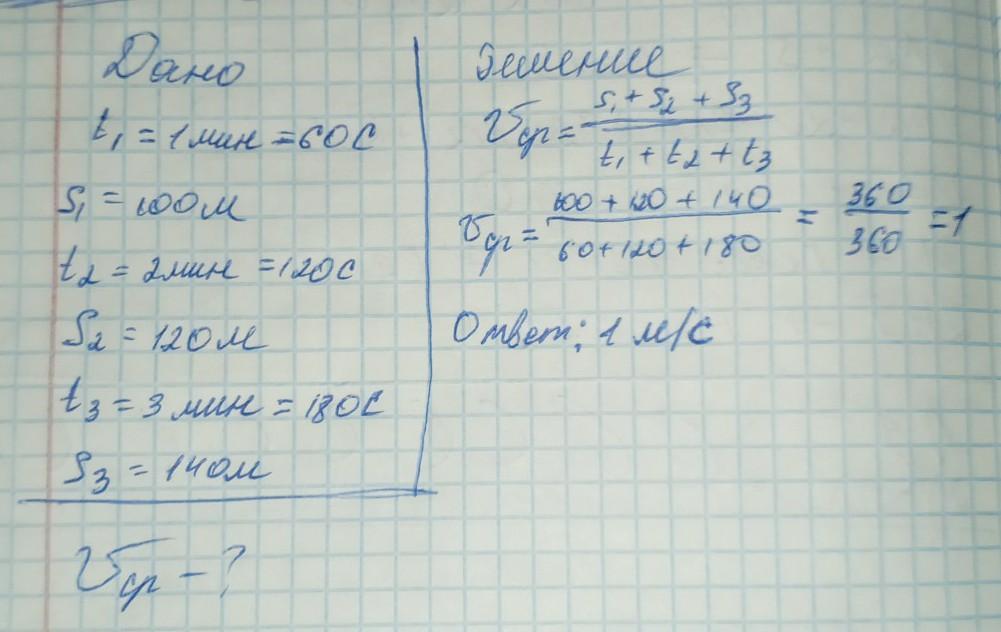 Дано
t₁ = 1 мин = 60 с
S₁ = 100 м
t₂ = 2 мин = 120 с
S₂ = 120 м
t₃ = 3 мин = 180 с
S₃ = 140 м
Vср - ?
Решение
Vср = (S₁ + S₂ + S₃) / (t₁ + t₂ + t₃)
Vср = (100 + 120 + 140) / (60 + 120 + 180) = 360 / 360 = 1
Ответ: 1 м/с